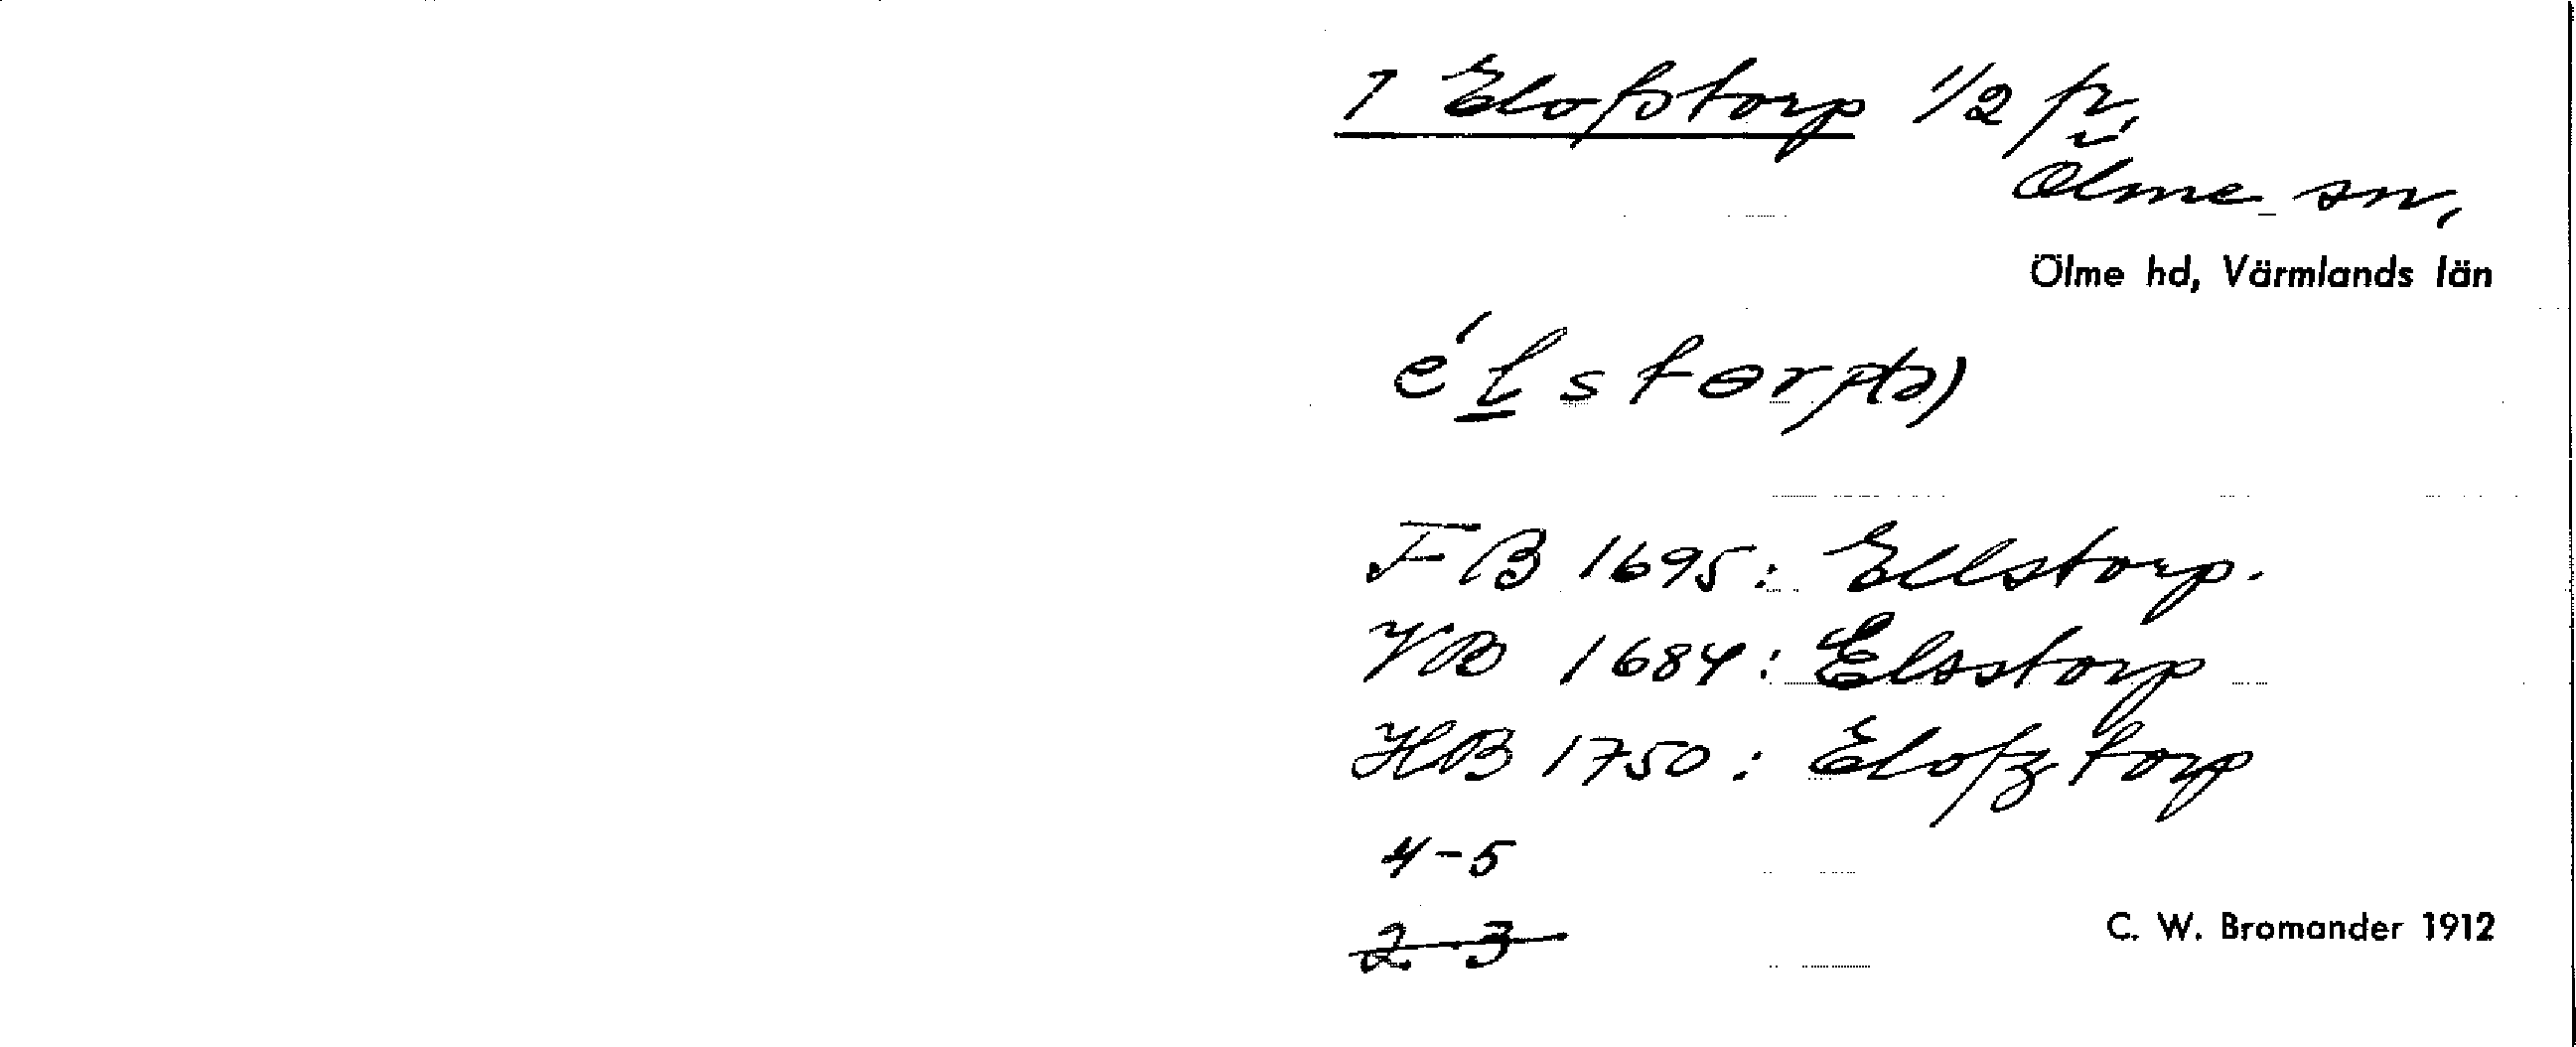 1 Elofstorp 1/2 fr,
Ölme sn,
Ölme hd, Värmlands län
élstorp(ə)
FB 1695: Ellstorp.
VB 1684: Elsstorp
HB 1750: Elofztorp
4-5
2-3
C. W. Bromander 1912